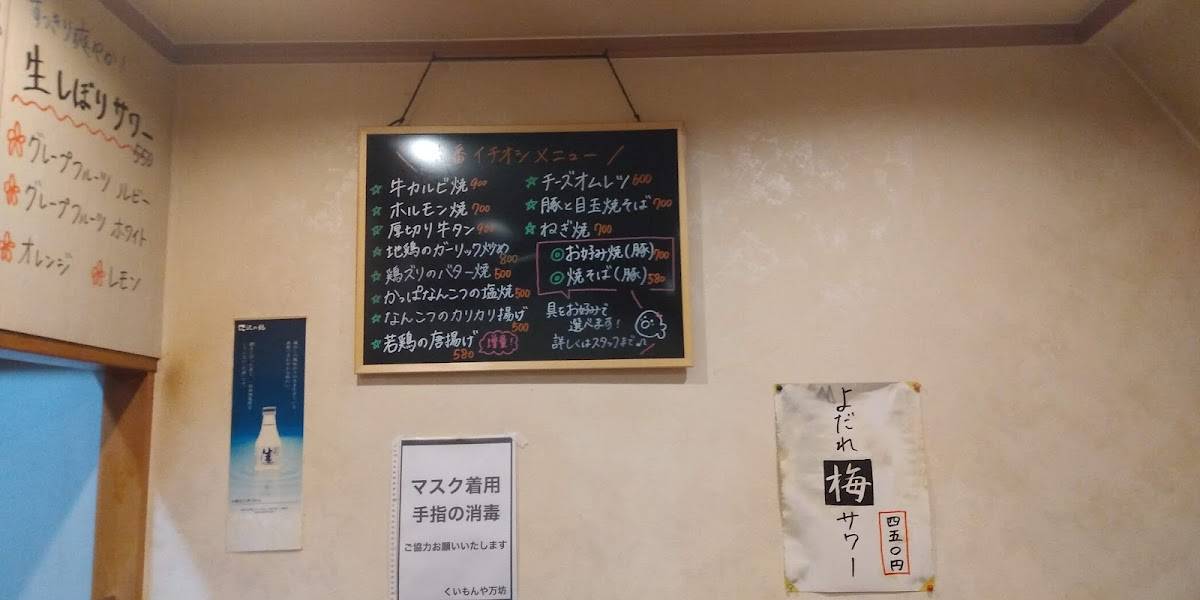 すっきり爽やか!
生しぼりサワー
550
グレープフルーツ ルビー
グレープフルーツ ホワイト
オレンジ レモン
番イチオシメニュー
牛カルビ焼 900
ホルモン焼 700
厚切り牛タン 900
地鶏のガーリック炒め
800
鶏ズリのバター焼 500
かっぱなんこつの塩焼 500
なんこつのカリカリ揚げ
500
若鶏の唐揚げ 増量!
580
チーズオムレツ 600
豚と目玉焼そば 700
ねぎ焼 700
◎お好み焼(豚) 700
◎焼そば(豚) 580
具をお好みで
選べます!
詳しくはスタッフまで
生
マスク着用
手指の消毒
ご協力お願いいたします
くいもんや万坊
よだれ
梅
サワー
四五〇円